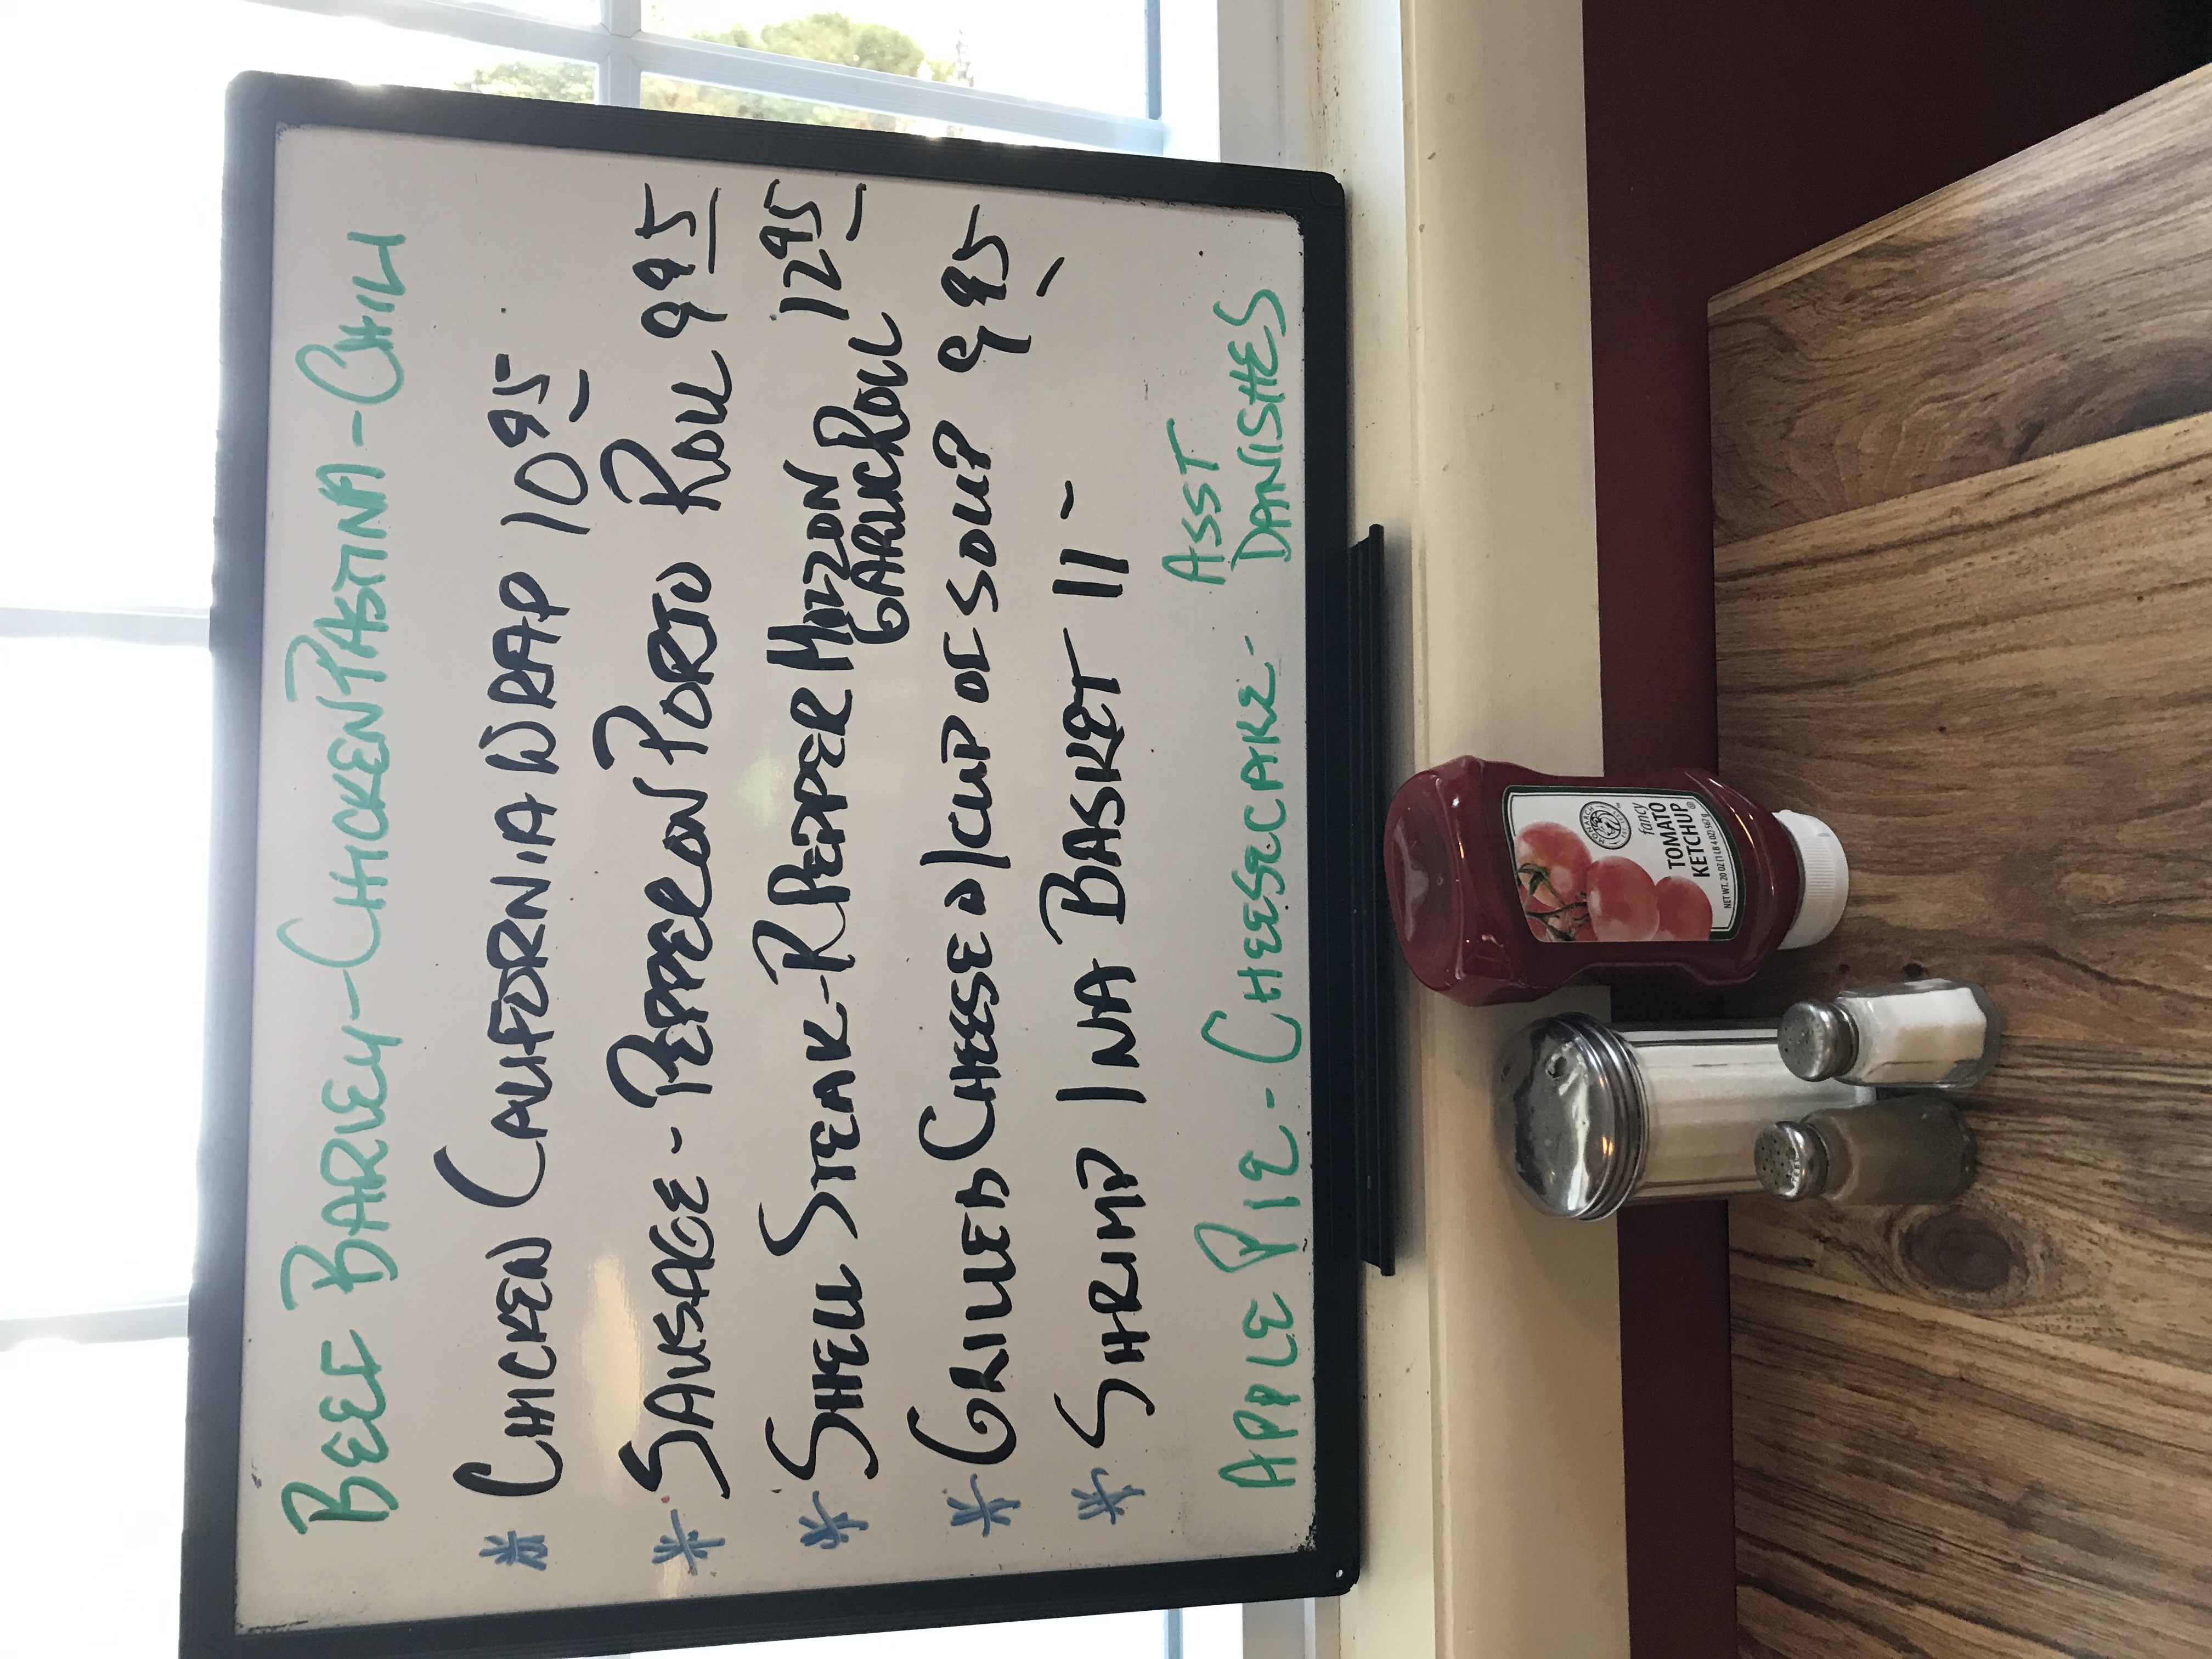 BEEF BARLEY-CHICKEN PASTINA-CHILI
* CHICKEN CALIFORNIA WRAP 10 95
* SAUSAGE-PEPPER ON PORTO ROLL 9 95
* SHELL STEAK-R PEPPER MOZZ ON GARLIC ROLL 12 95
* GRILLED CHEESE W/CUP OF SOUP 9 95
* SHRIMP IN A BASKET 11-
APPLE PIE-CHEESECAKE-ASST DANISHES
MONARCH
fancy
TOMATO
KETCHUP
NET WT. 20 OZ (1 LB 4 OZ) 567g